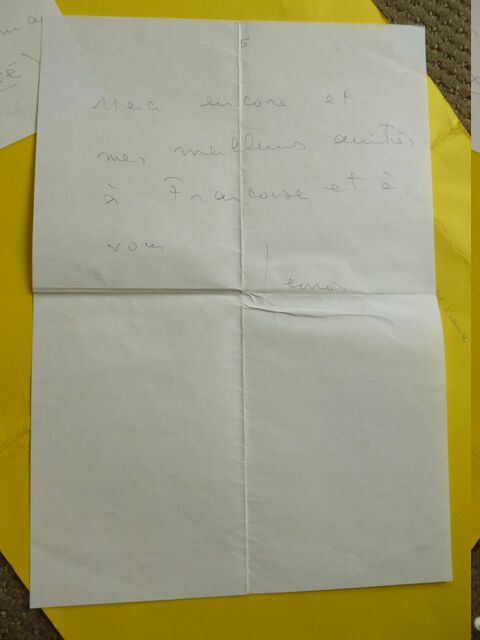 5
Merci encore et
mes meilleurs amitiés
à Françoise et à
vous